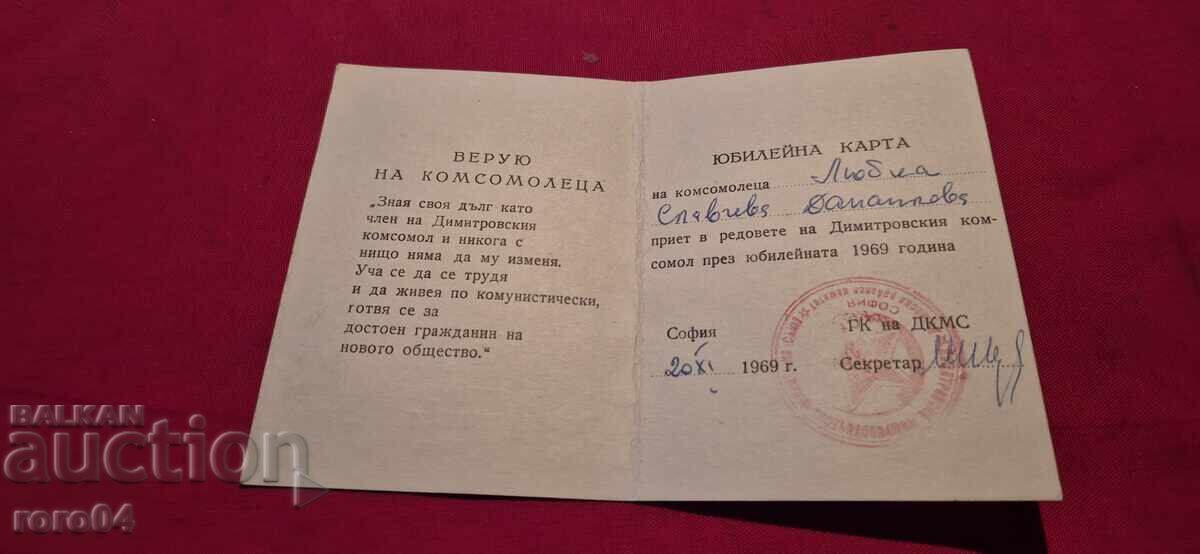 ВЕРУЮ
НА КОМСОМОЛЕЦА
„Зная своя дълг като
член на Димитровския
комсомол и никога с
нищо няма да му изменя.
Уча се да се трудя
и да живея по комунистически,
готвя се за
достоен гражданин на
новото общество."
ЮБИЛЕЙНА КАРТА
на комсомолеца Любка
Славчева
приет в редовете на Димитровския ком-
сомол през юбилейната 1969 година
София ГК на ДКМС
20 XI 1969 г. Секретар
СОФИЯ
BALKAN
auction
roro04